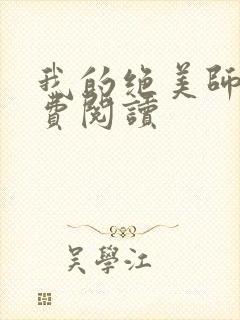 我的绝美师
費閱讀
吴學江